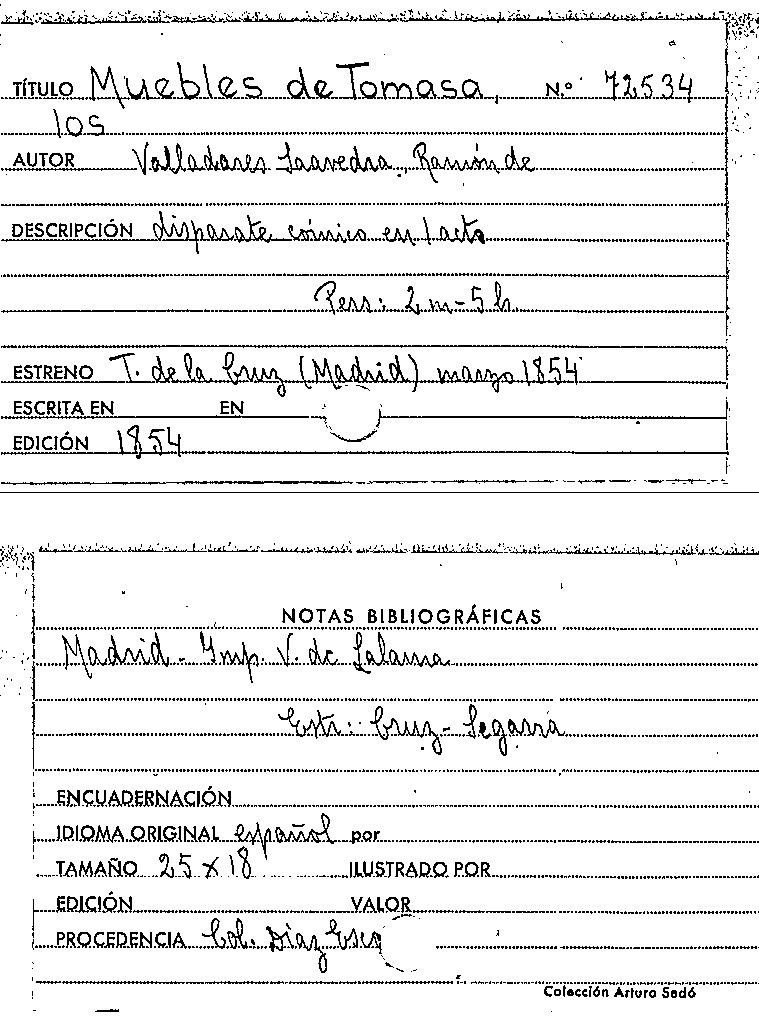 TÍTULO Muebles de Tomasa, N.º 72534
los
AUTOR Valladares Saavedra, Ramón de
DESCRIPCIÓN disparate cómico en 1 acto
Pers: 2 m - 5 h.
ESTRENO T. de la Cruz (Madrid) marzo 1854
ESCRITA EN EN
EDICIÓN 1854
NOTAS BIBLIOGRÁFICAS
Madrid - Imp. V. de Lalama
Estr: Cruz - Segarra
ENCUADERNACIÓN
IDIOMA ORIGINAL español por
TAMAÑO 25 x 18 ILUSTRADO POR
EDICIÓN VALOR
PROCEDENCIA Col. Díaz Esco
Colección Arturo Sedó